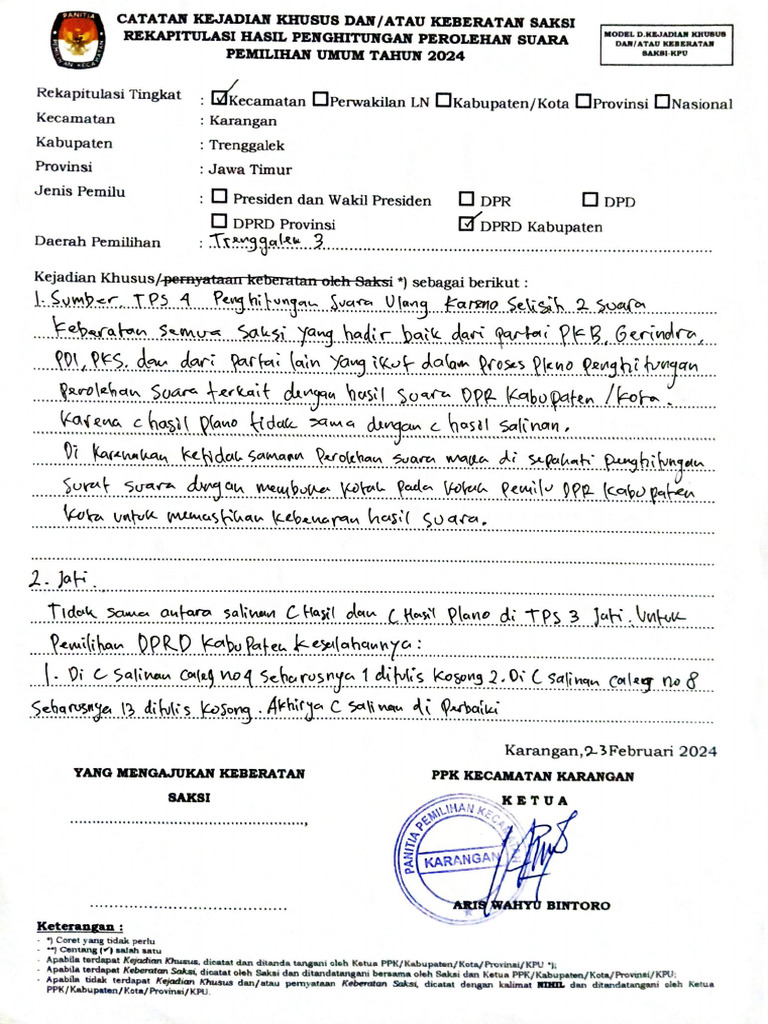 CATATAN KEJADIAN KHUSUS DAN/ATAU KEBERATAN SAKSI
REKAPITULASI HASIL PENGHITUNGAN PEROLEHAN SUARA
PEMILIHAN UMUM TAHUN 2024
MODEL D.KEJADIAN KHUSUS
DAN/ATAU KEBERATAN
SAKSI-KPU
Rekapitulasi Tingkat : ☑Kecamatan ☐Perwakilan LN ☐Kabupaten/Kota ☐Provinsi ☐Nasional
Kecamatan : Karangan
Kabupaten : Trenggalek
Provinsi : Jawa Timur
Jenis Pemilu : ☐ Presiden dan Wakil Presiden ☐ DPR ☐ DPD
☐ DPRD Provinsi ☑ DPRD Kabupaten
Daerah Pemilihan : Trenggalek 3
Kejadian Khusus/pernyataan keberatan oleh Saksi *) sebagai berikut :
1. Sumber. TPS 4 Penghitungan Suara Ulang Kareno Selisih 2 suara
Keberatan semua saksi yang hadir baik dari partai PKB, Gerindra,
PDI, PKS. dan dari partai lain yang ikut dalam proses pleno penghitungan
perolehan suara terkait dengan hasil suara DPR Kabupaten / Kota.
Karena c hasil plano tidak sama dengan c hasil salinan.
Di karenakan ketidak samaan perolehan suara maka di sepakati penghitungan
surat suara dengan membuka kotak pada kotak pemilu DPR Kabupaten
Kota untuk memastikan kebenaran hasil suara.
2. Jati.
Tidak sama antara salinan C Hasil dan C Hasil Plano di TPS 3 Jati. Untuk
Pemilihan DPRD Kabupaten Kesalahannya :
1. Di C salinan caleg no 4 seharusnya 1 ditulis kosong 2. Di C salinan caleg no 8
Seharusnya 13 ditulis kosong. Akhirya C salinan di Perbaiki
Karangan, 23 Februari 2024
YANG MENGAJUKAN KEBERATAN
SAKSI
PPK KECAMATAN KARANGAN
KETUA
PANITIA PEMILIHAN KECAMATAN
KARANGAN
ARIS WAHYU BINTORO
Keterangan :
- *) Coret yang tidak perlu
- **) Centang (✔) salah satu
- Apabila terdapat Kejadian Khusus, dicatat dan ditanda tangani oleh Ketua PPK/Kabupaten/Kota/Provinsi/KPU *);
- Apabila terdapat Keberatan Saksi, dicatat oleh Saksi dan ditandatangani bersama oleh Saksi dan Ketua PPK/Kabupaten/Kota/Provinsi/KPU;
- Apabila tidak terdapat Kejadian Khusus dan/atau pernyataan Keberatan Saksi, dicatat dengan kalimat NIHIL dan ditandatangani oleh Ketua
PPK/Kabupaten/Kota/Provinsi/KPU.